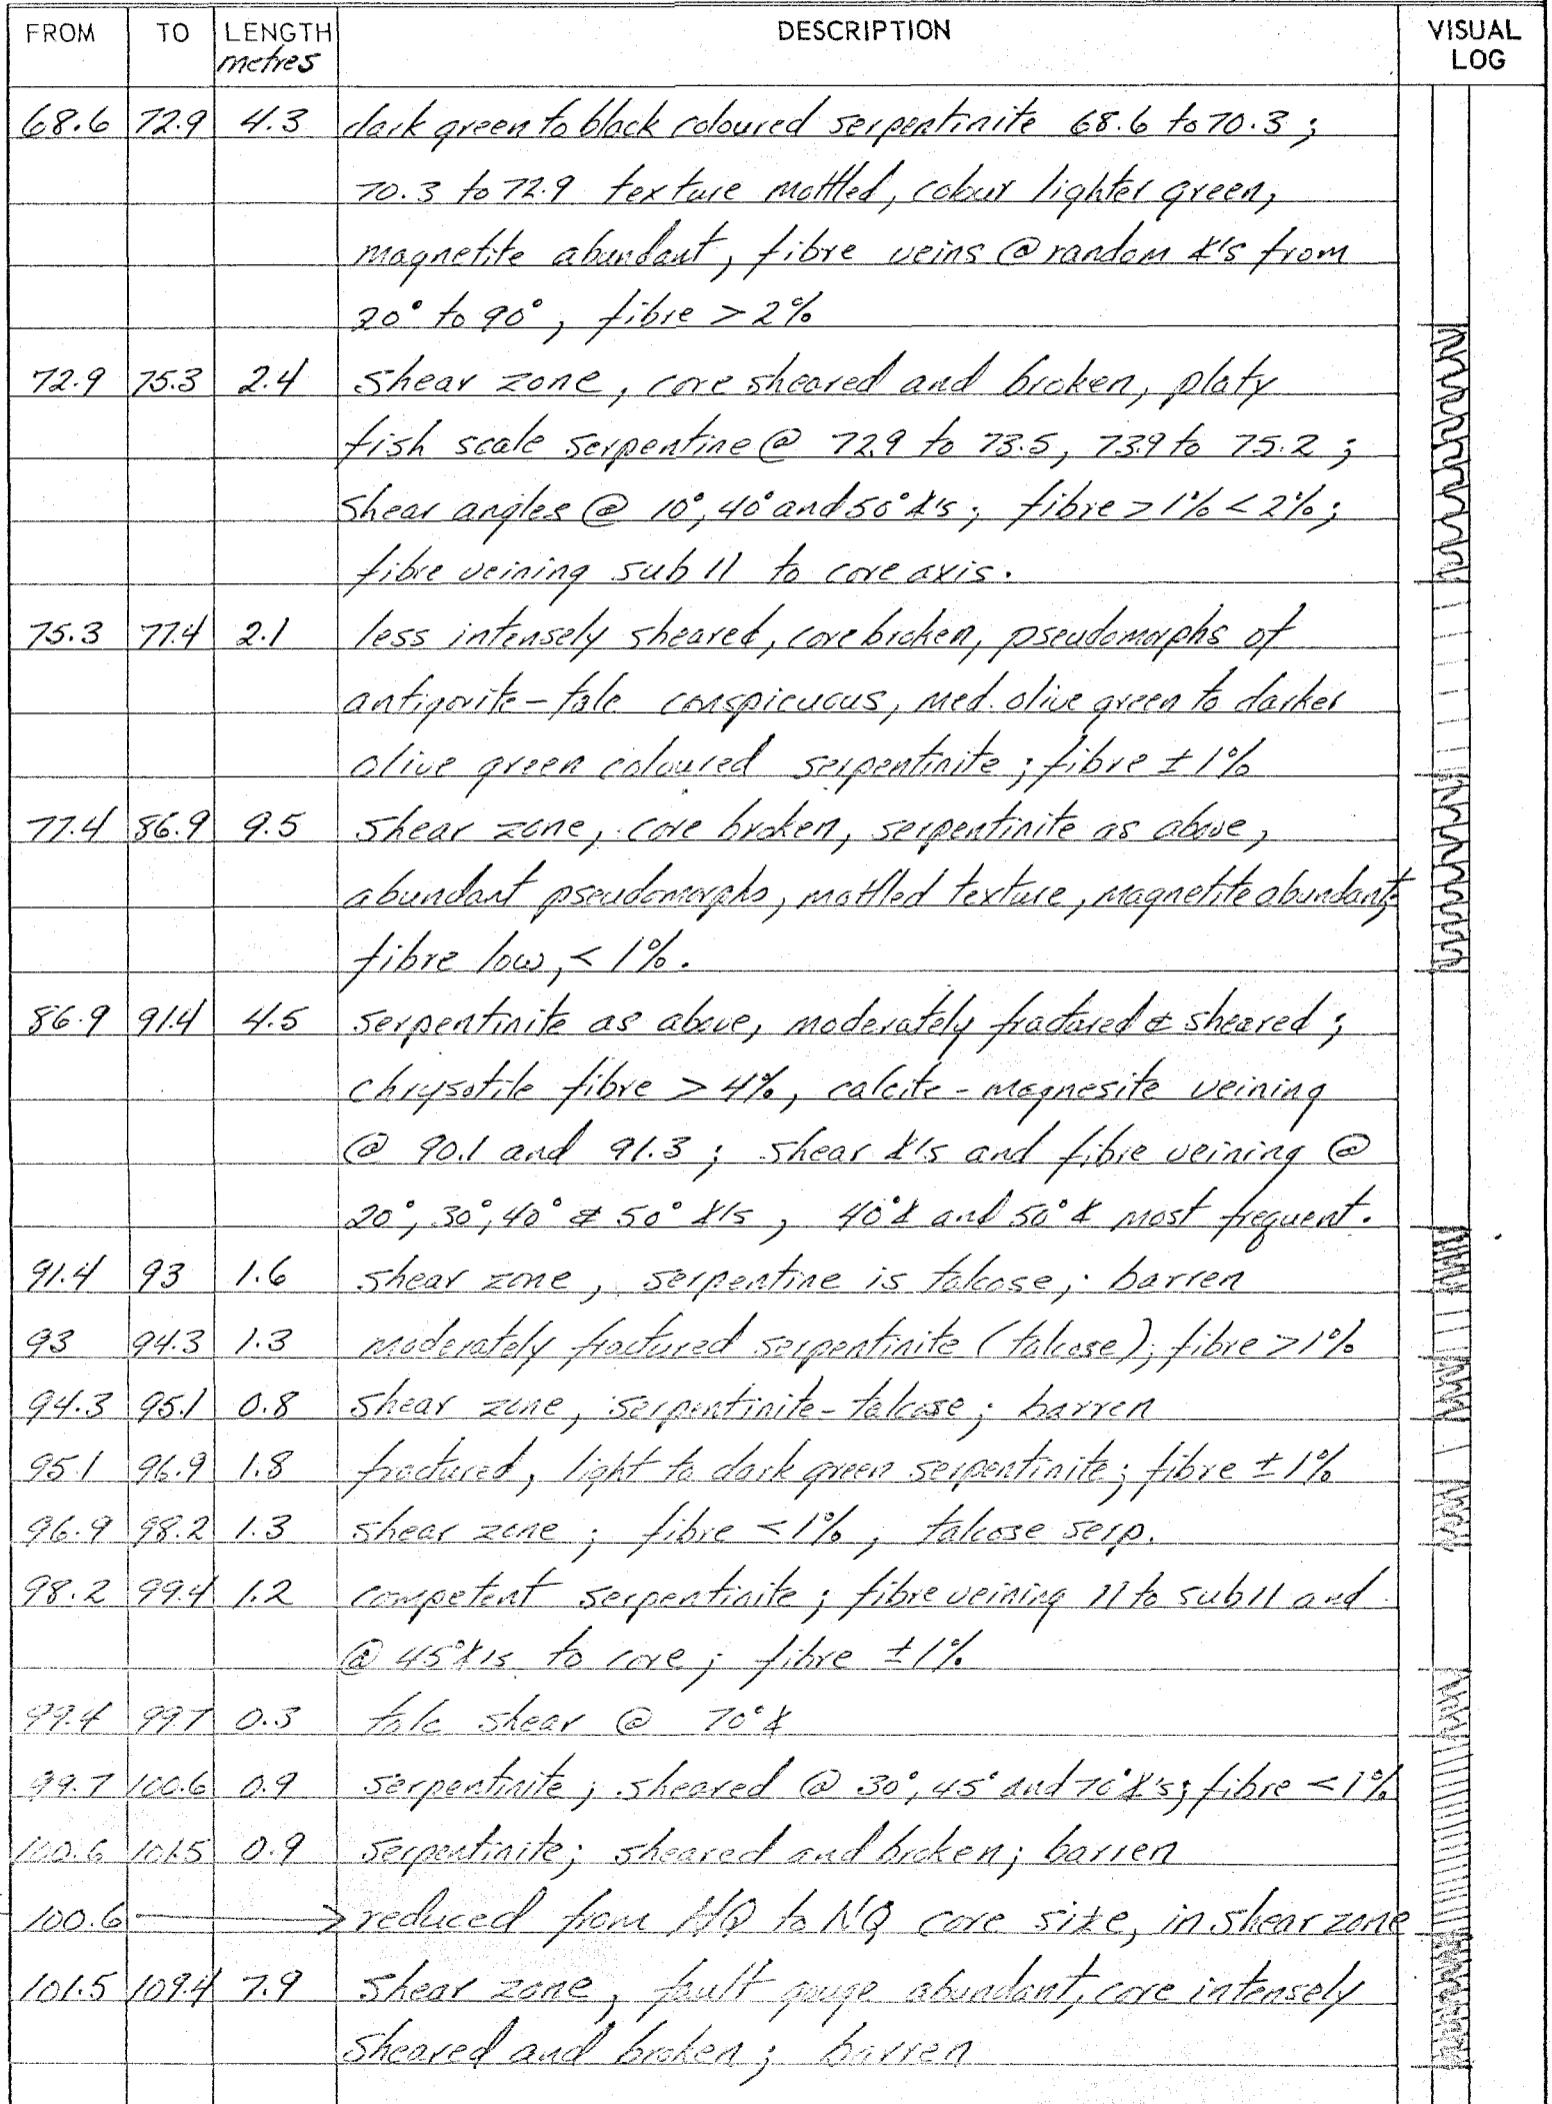 FROM TO LENGTH DESCRIPTION VISUAL
metres LOG
68.6 72.9 4.3 dark green to black coloured serpentinite 68.6 to 70.3 ;
70.3 to 72.9 texture mottled, colour lighter green,
magnetite abundant, fibre veins @ random ∡'s from
20° to 90°, fibre > 2%
72.9 75.3 2.4 shear zone, core sheared and broken, platy
fish scale serpentine @ 72.9 to 73.5, 73.9 to 75.2 ;
shear angles @ 10°, 40° and 50° ∡'s ; fibre > 1% < 2% ;
fibre veining sub 11 to core axis.
75.3 77.4 2.1 less intensely sheared, core broken, pseudomorphs of
antigorite - talc conspicuous, med. olive green to darker
olive green coloured serpentinite ; fibre ± 1%
77.4 86.9 9.5 shear zone, core broken, serpentinite as above,
abundant pseudomorphs, mottled texture, magnetite abundant,
fibre low, < 1%.
86.9 91.4 4.5 serpentinite as above, moderately fractured & sheared ;
chrysotile fibre > 4%, calcite - magnesite veining
@ 90.1 and 91.3 ; shear ∡'s and fibre veining @
20°, 30°, 40° & 50° ∡'s, 40° ∡ and 50° ∡ most frequent.
91.4 93 1.6 shear zone, serpentine is talcose ; barren
93 94.3 1.3 moderately fractured serpentinite (talcose) ; fibre > 1%
94.3 95.1 0.8 shear zone, serpentinite - talcose ; barren
95.1 96.9 1.8 fractured, light to dark green serpentinite ; fibre ± 1%
96.9 98.2 1.3 shear zone ; fibre < 1%, talcose serp.
98.2 99.4 1.2 competent serpentinite ; fibre veining 11 to sub 11 and
@ 45° ∡'s to core ; fibre ± 1%
99.4 99.7 0.3 talc shear @ 70° ∡
99.7 100.6 0.9 serpentinite ; sheared @ 30°, 45° and 70° ∡'s ; fibre < 1%
100.6 101.5 0.9 serpentinite ; sheared and broken ; barren
100.6 → reduced from HQ to NQ core size, in shear zone
101.5 109.4 7.9 shear zone, fault gouge abundant, core intensely
sheared and broken ; barren